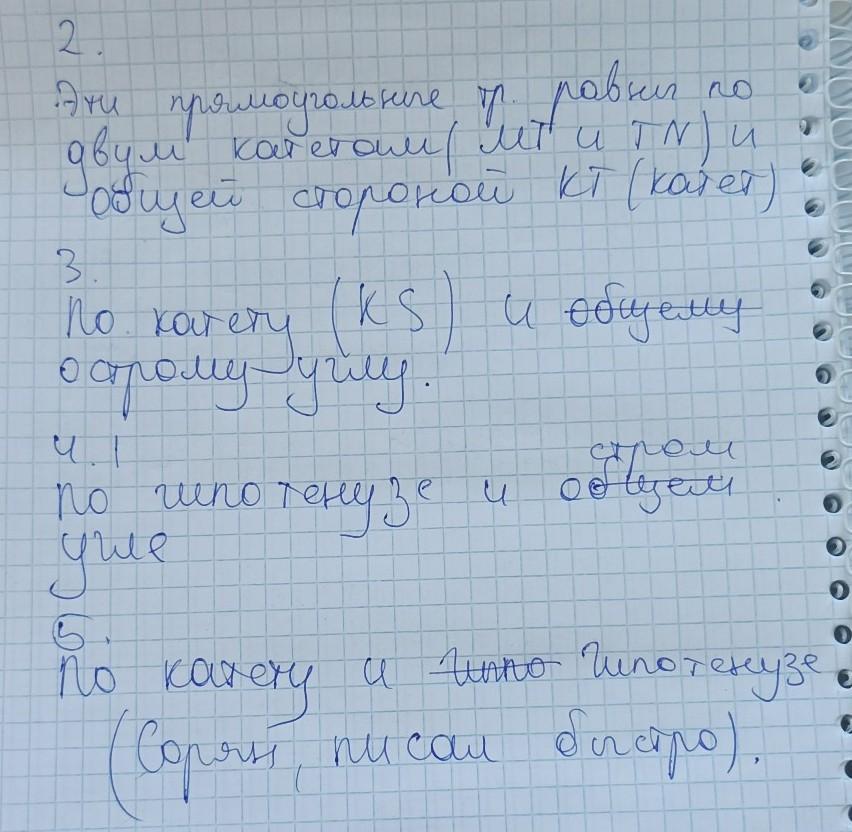 2.
Эти прямоугольные тр. равны по
двум катетам (MT и TN) и
общей стороной KT (катет)
3.
По катету (KS) и общему
острому углу.
4.
стром
по гипотенузе и общем
угле
5.
По катету и гипо гипотенузе
(Сорян, писал быстро).